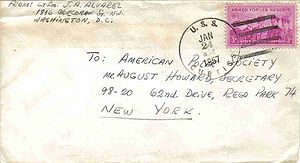 FROM: LT JG. J.A. ALVAREZ
1916 CORCORAN St. N.W.
WASHINGTON, D.C.
U. S. S.
JAN
24
1957
ARMED FORCES RESERVE
TO: AMERICAN SOCIETY
Mr AUGUST HOWARD, SECRETARY
98-20 62nd. DRIVE, REGO PARK 74
NEW YORK.